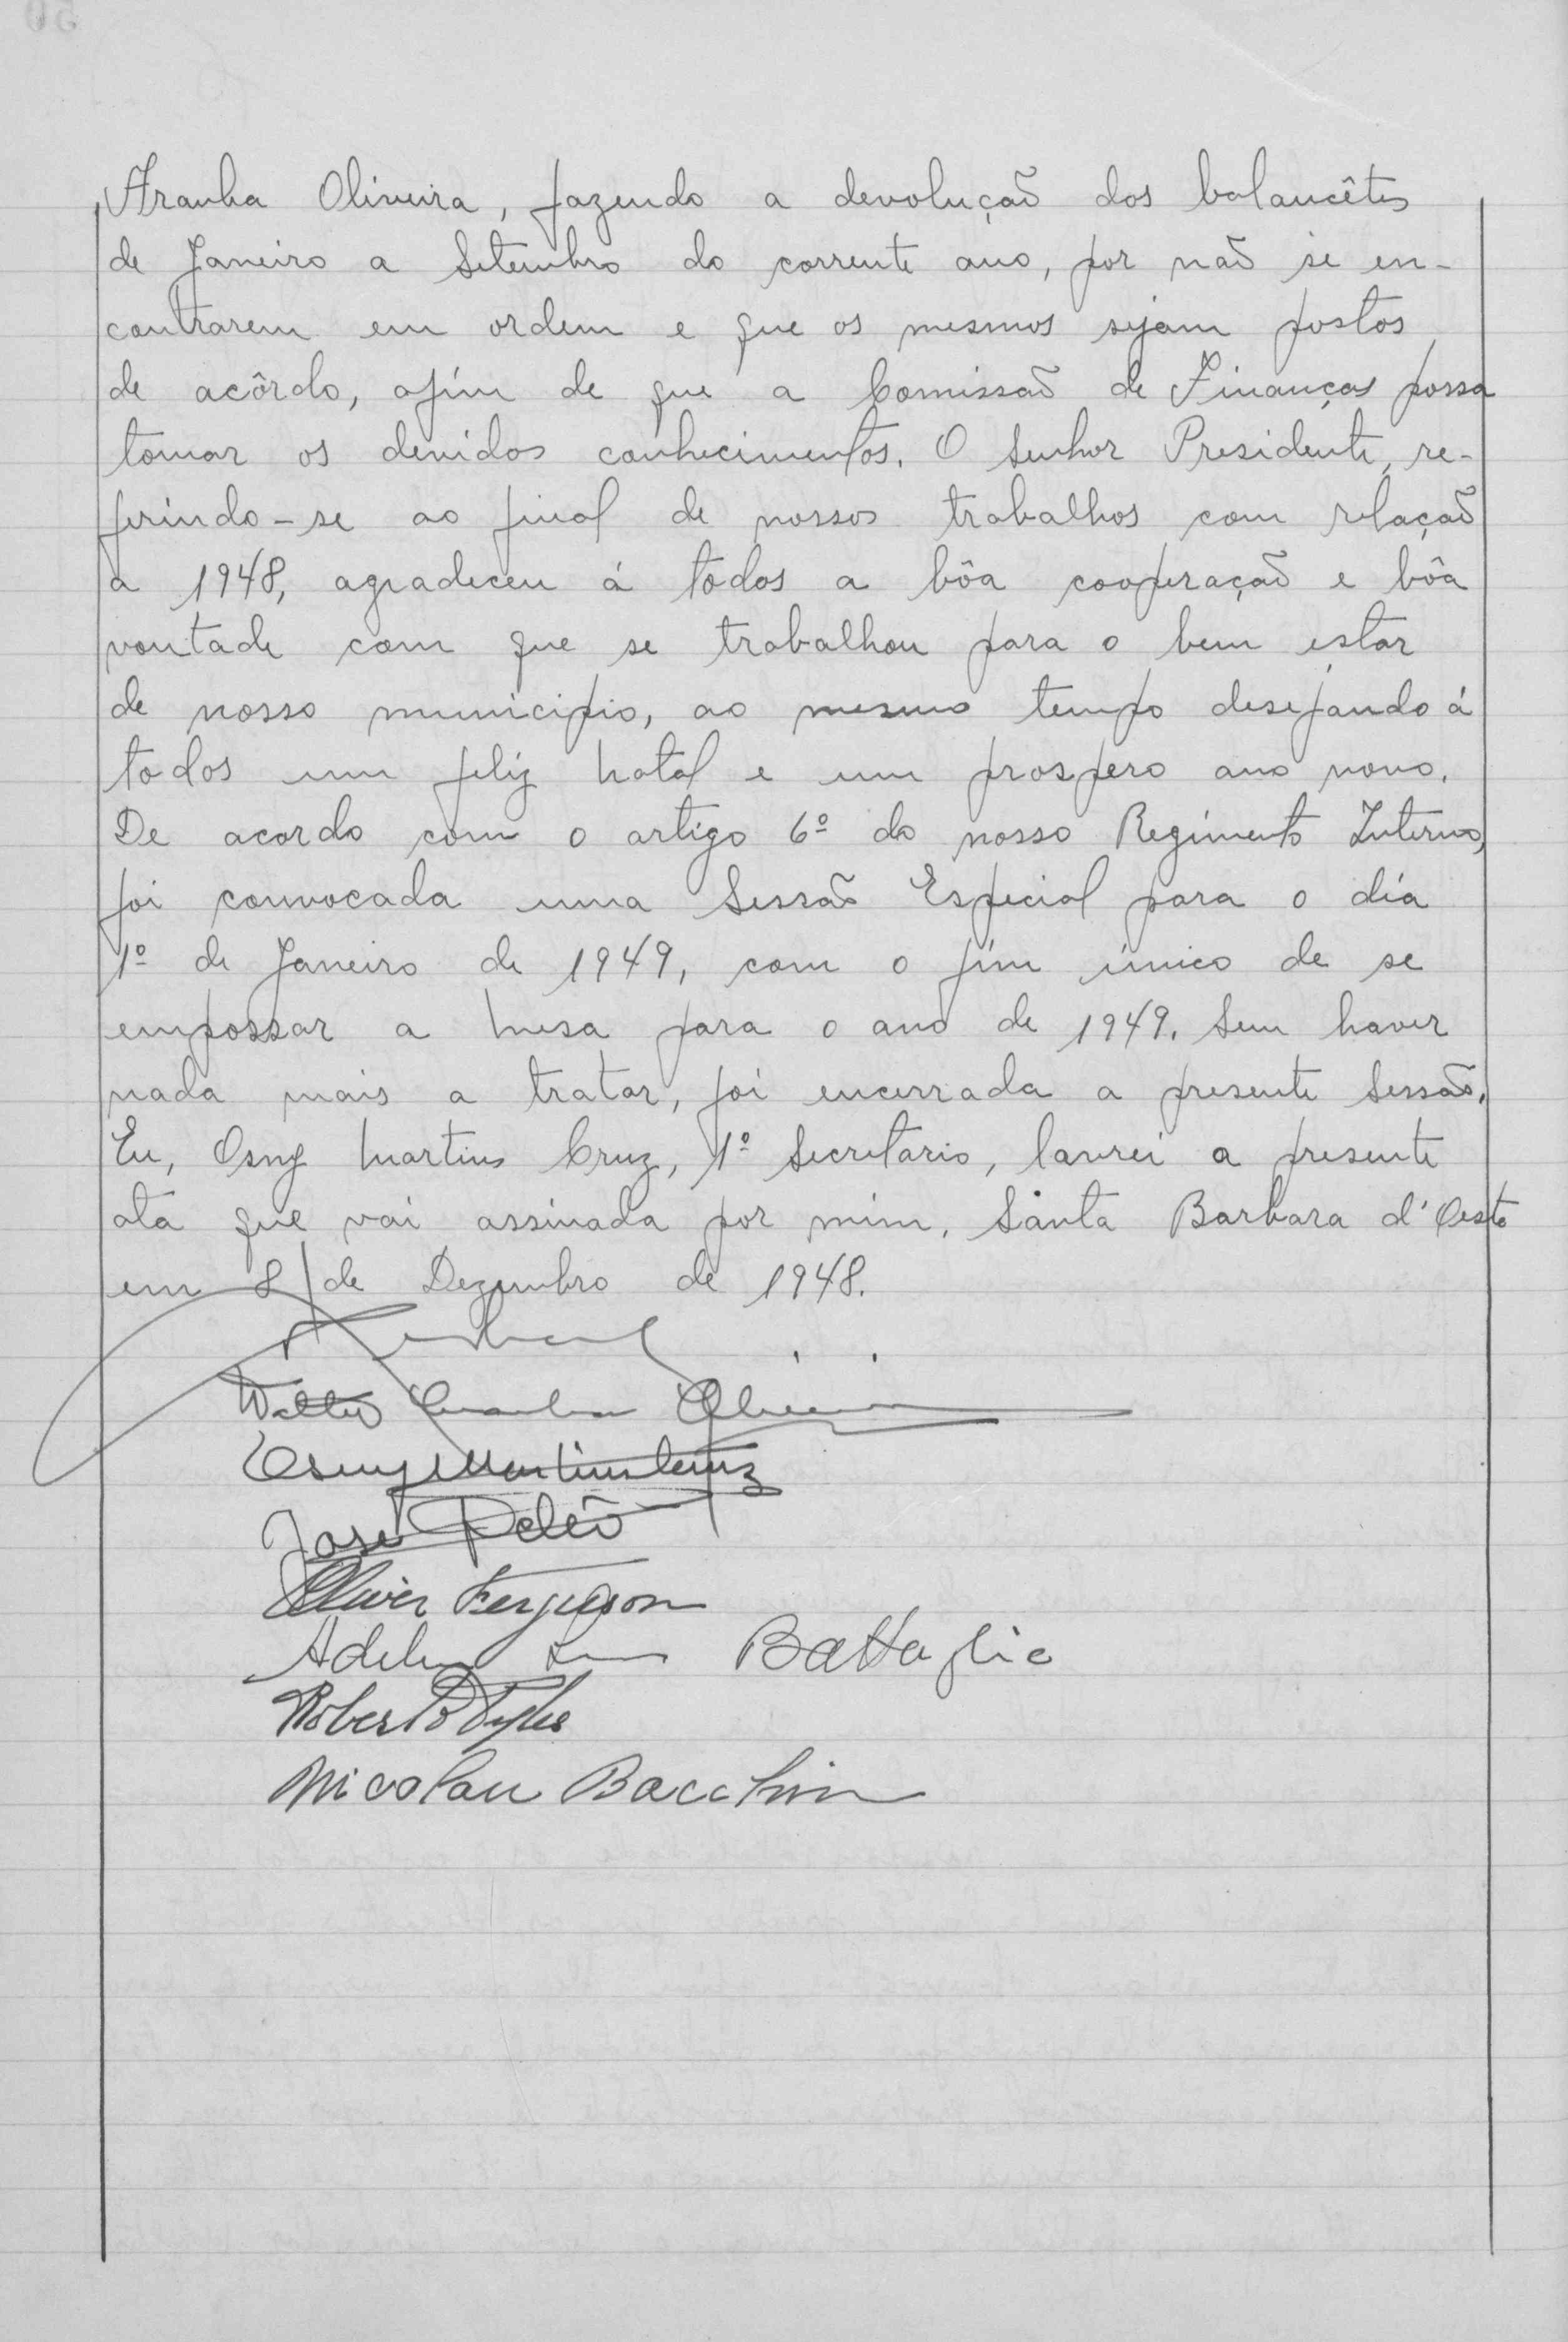 Aranha Oliveira, fazendo a devolução dos balancêtes
de Janeiro a Setembro do corrente ano, por não se en-
contrarem em ordem e que os mesmos sejam postos
de acôrdo, afim de que a Comissão de Finanças possa
tomar os devidos conhecimentos. O Senhor Presidente, re-
ferindo-se ao final de nossos trabalhos com relação
a 1948, agradeceu á todos a bôa cooperação e bôa
vontade com que se trabalhou para o bem estar
de nosso municipio, ao mesmo tempo desejando á
todos um feliz Natal e um prospero ano novo.
De acordo com o artigo 6º do nosso Regimento Interno,
foi convocada uma Sessão Especial para o dia
1º de Janeiro de 1949, com o fim único de se
empossar a Mesa para o ano de 1949. Sem haver
nada mais a tratar, foi encerrada a presente Sessão.
Eu, Osny Martins Cruz, 1º Secretario, lavrei a presente
ata que vai assinada por mim. Santa Barbara d'Oeste
em 8 de Dezembro de 1948.
Walter Aranha Oliveira
Osny Martins Cruz
José
Oliver Ferguson
Battaglia
Roberto
Nicolau Bacchin